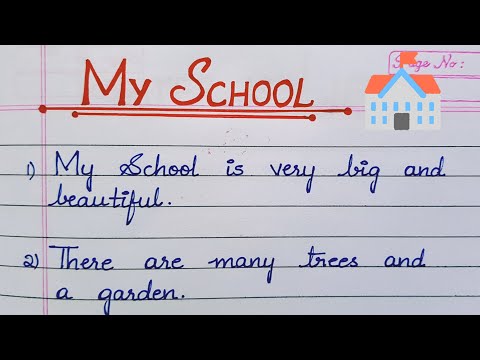 Page No:
MY SCHOOL
1) My School is very big and
beautiful.
2) There are many trees and
a garden.